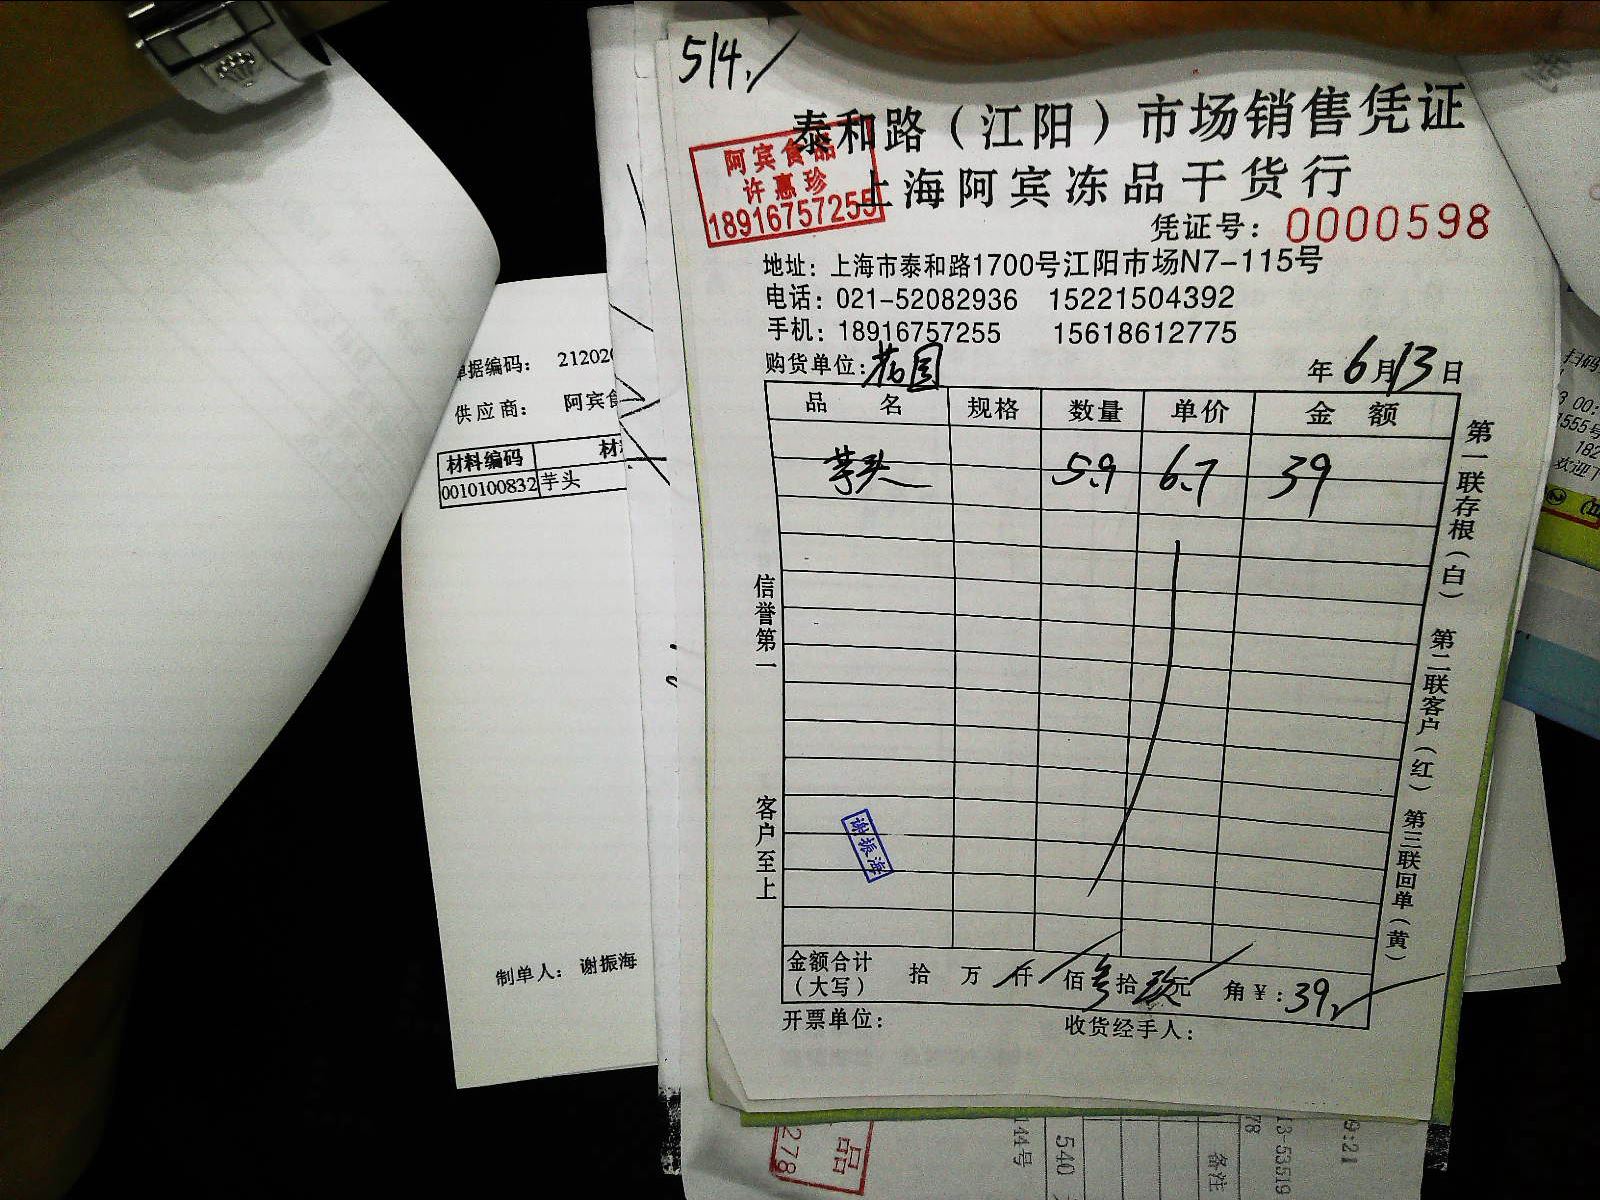 514
泰和路（江阳）市场销售凭证
阿宾食品
许惠珍
18916757255
上海阿宾冻品干货行
凭证号：0000598
地址：上海市泰和路1700号江阳市场N7-115号
电话：021-52082936 15221504392
手机：18916757255 15618612775
购货单位： 年6月13日
品 名 规格 数量 单价 金 额
芋头 5.9 6.7 39
信誉第一
客户至上
谢振海
金额合计（大写） 拾 万 仟 佰叁拾玖元 角 ¥：39
开票单位： 收货经手人：
第一联存根（白） 第二联客户（红） 第三联回单（黄）
单据编码： 212020
供应商： 阿宾食
材料编码 材
0010100832 芋头
制单人： 谢振海
278
品
144号
540
备注
13-53519
78
9:21
扫码
00:
1555号
182
欢迎